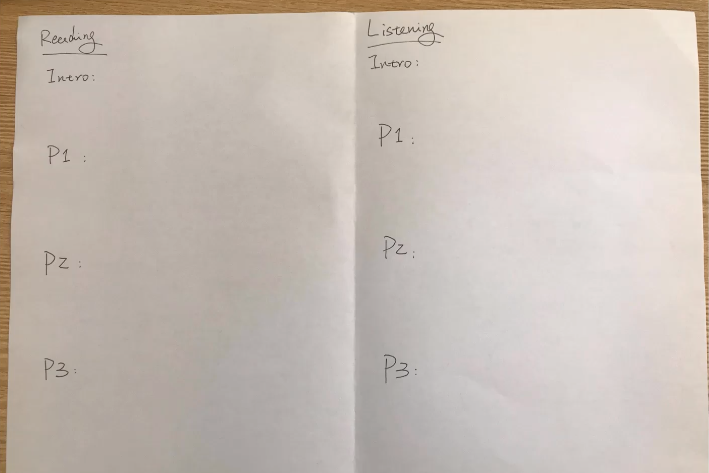 Reading
Intro:
P1:
P2:
P3:
Listening
Intro:
P1:
P2:
P3: